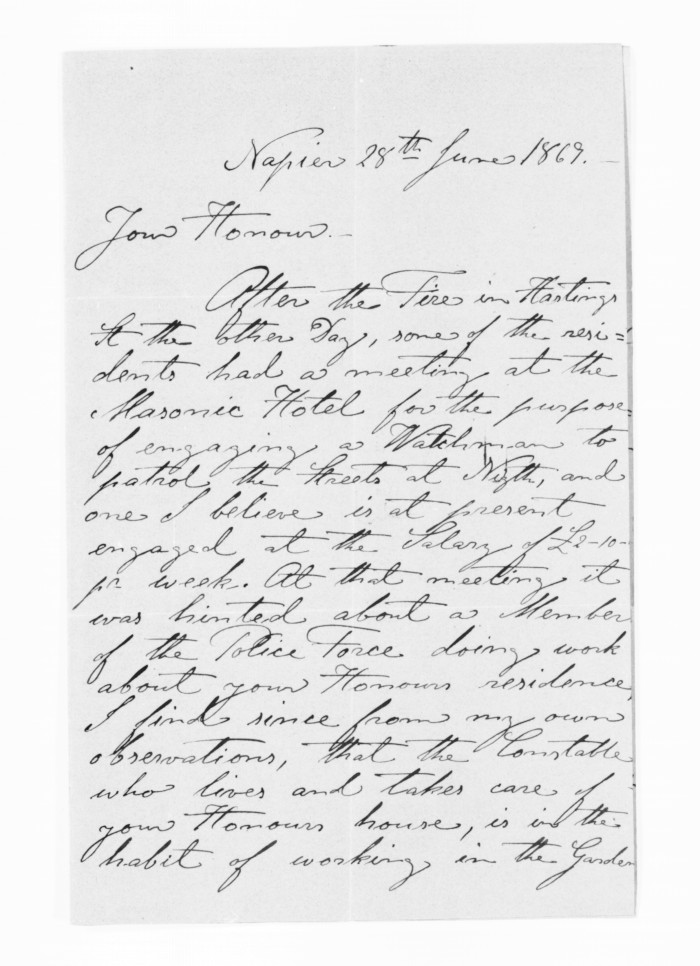 Napier 28th June 1869.-
Your Honour.-
After the Fire in Hastings
St the other Day, some of the resi=
dents had a meeting at the
Masonic Hotel for the purpose
of engaging a Watchman to
patrol the Streets at Nigth, and
one I believe is at present
engaged at the Salary of £2-10-
pr week. At that meeting it
was hinted about a Member
of the Police Force doing work
about your Honours residence,
I find since from my own
observations, that the Constable
who lives and takes care of
your Honours house, is in the
habit of working in the Garden